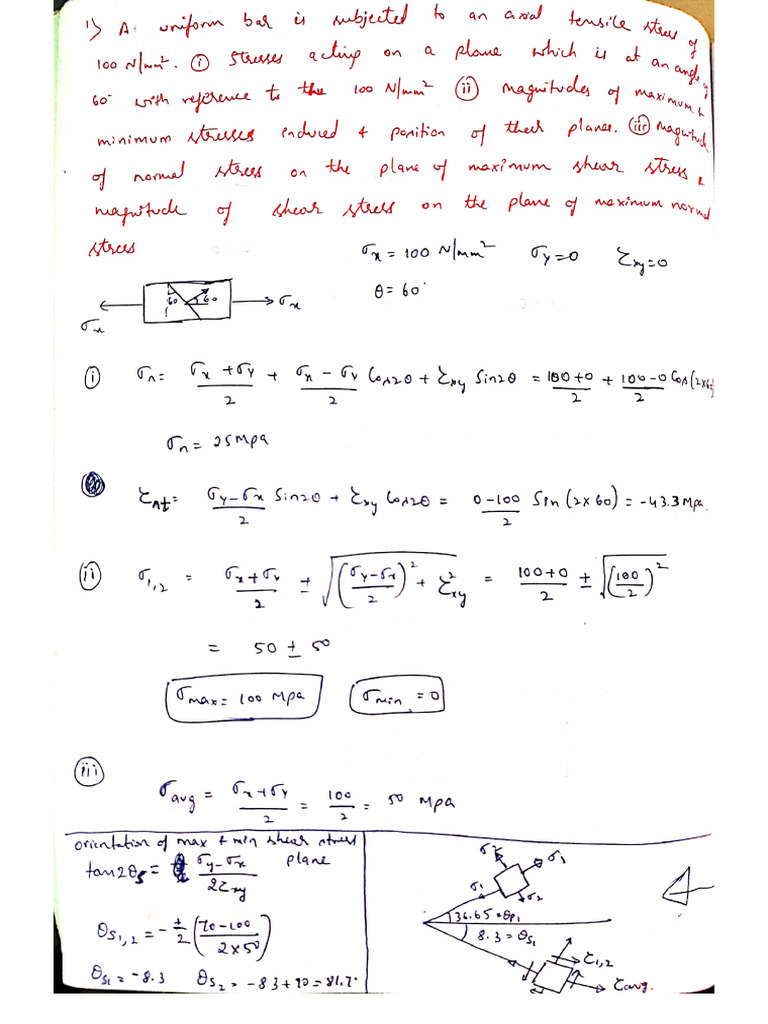 1) A. uniform bar is subjected to an axial tensile stress of
100 N/mm². (i) Stresses acting on a plane which is at an angle of
60° with reference to the 100 N/mm² (ii) magnitudes of maximum &
minimum stresses induced & position of their planes. (iii) magnitude
of normal stress on the plane of maximum shear stress &
magnitude of shear stress on the plane of maximum normal
stress
σx = 100 N/mm² σy=0 τxy=0
θ = 60°
60 60 σx
σx
(i) σn = σx + σy / 2 + σx - σy / 2 Cos2θ + τxy Sin2θ = 100+0 / 2 + 100-0 / 2 Cos(2×60)
σn = 25 Mpa
τnt = σy-σx / 2 Sin2θ + τxy Cos2θ = 0-100 / 2 Sin (2×60) = -43.3 Mpa.
(ii) σ1,2 = σx+σy / 2 ± √((σy-σx / 2)² + τ²xy) = 100+0 / 2 ± √(100 / 2)²
= 50 ± 50
σmax = 100 Mpa σmin = 0
(iii)
σavg = σx+σy / 2 = 100 / 2 = 50 Mpa
orientation of max & min shear stress
plane
tan2θs = σy-σx / 2τxy
θs1,2 = - ± / 2 (70-100 / 2×50)
θs1 = -8.3 θs2 = -8.3+90 = 81.7°
σ2 σ1
σ1 σ2
36.65=θp1
8.3=θs1
τ1,2
σavg.